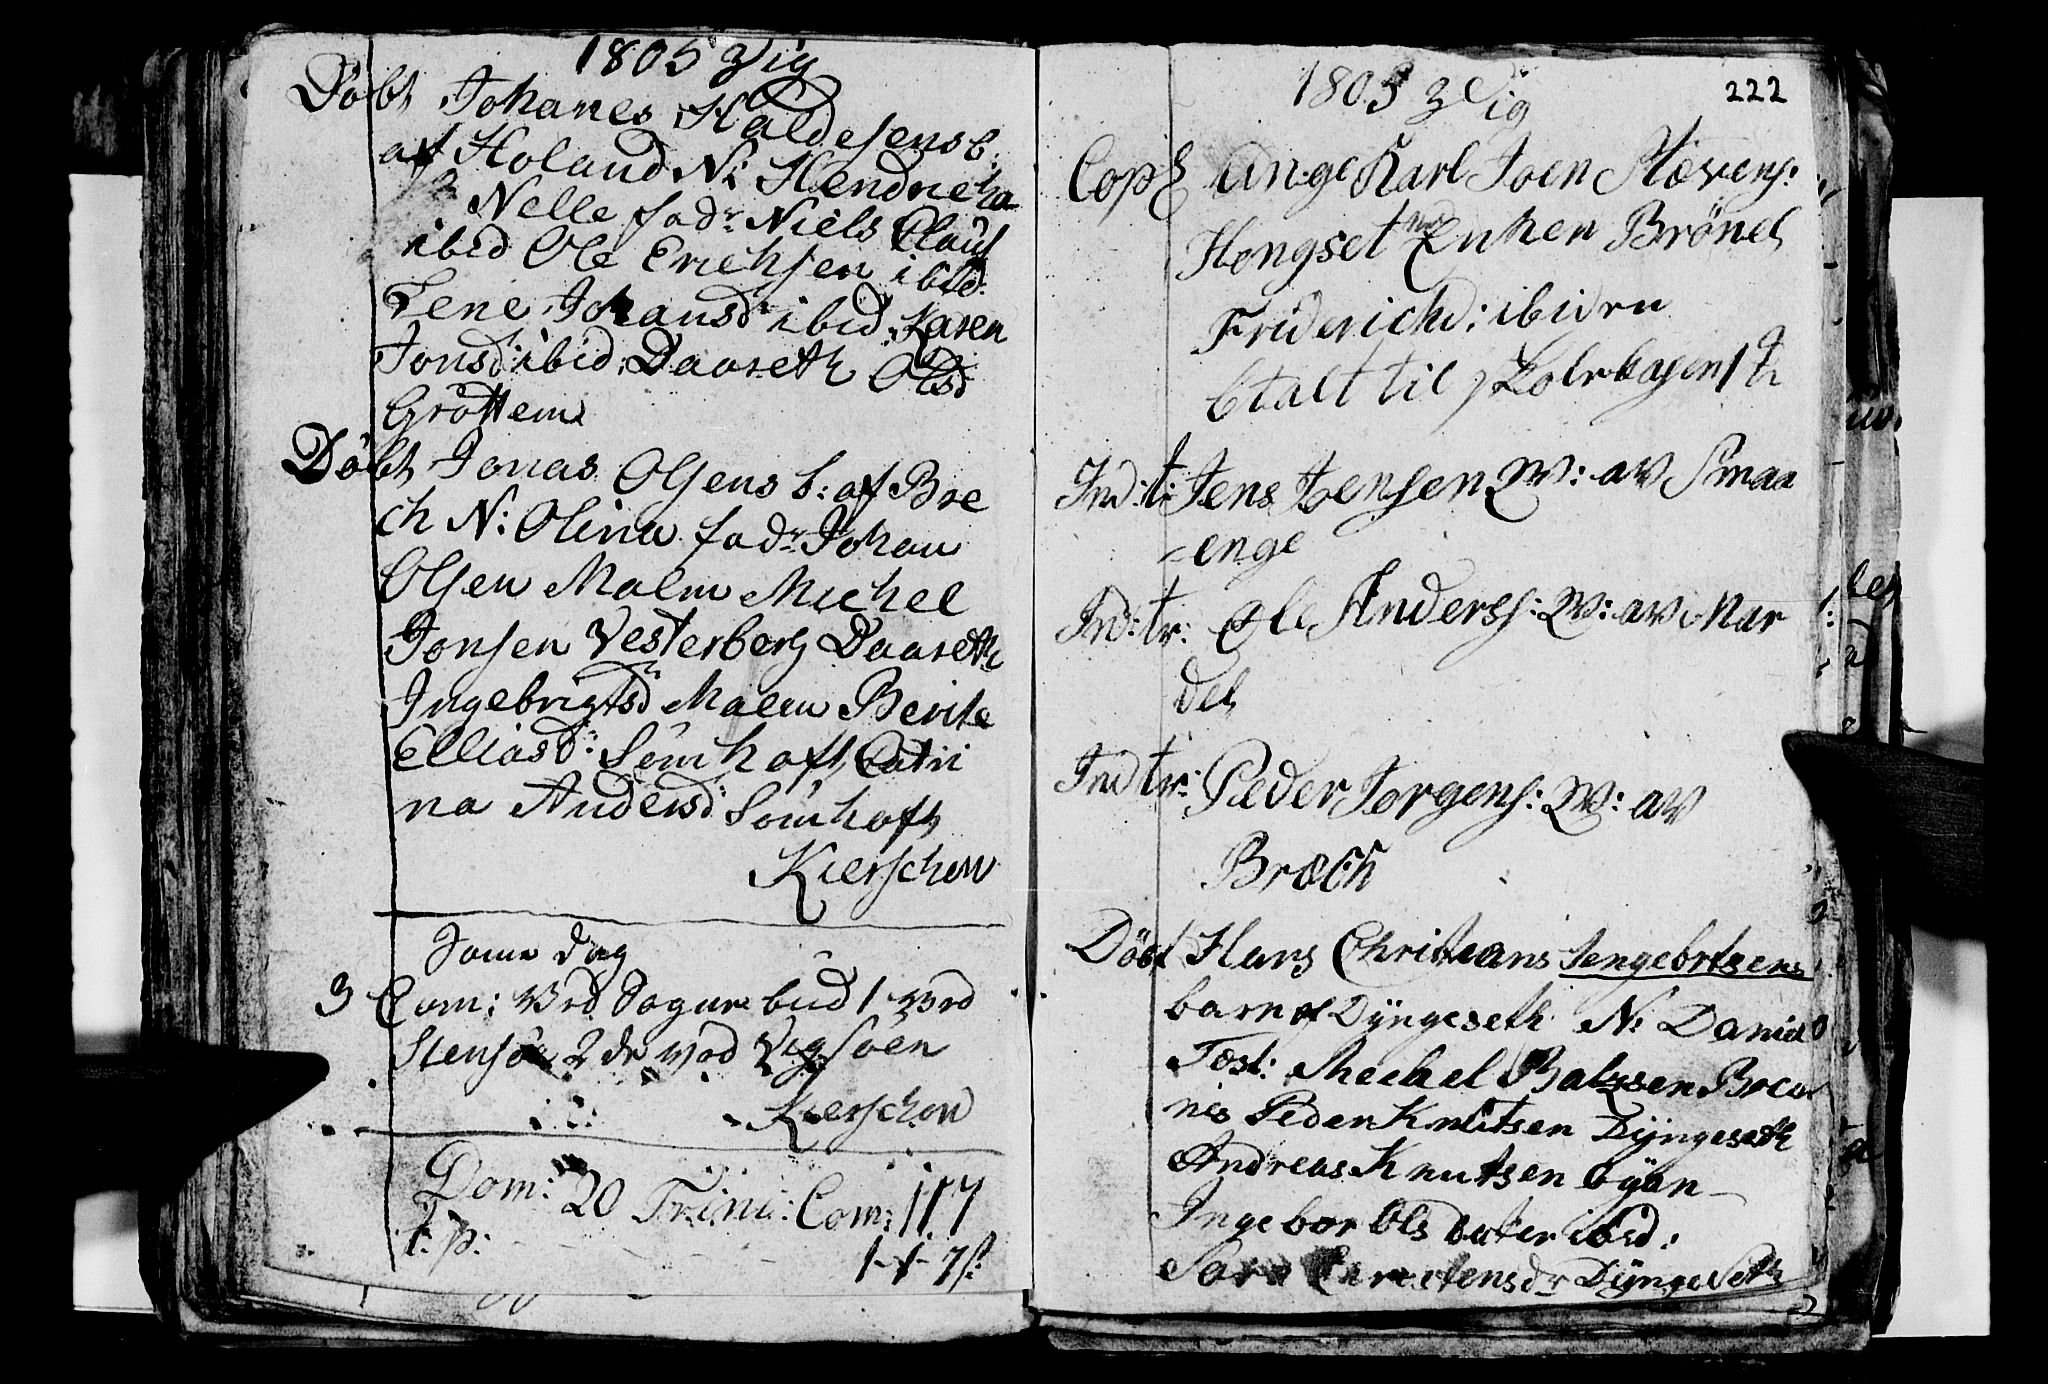 1805 Vig
Döbt Johanes Haldesens b:
af Holand N: Hendricha
Nelle fadr Niels Claus
ibid Ole Erichsen ibid:
Lene Johansd ibid Karen
Jonsd: ibid: Daareth Olsd
Gröttem
Döbt Jonas Olsens b: af Bre
ch N: Olina fadr Johan
Olsen Malm Michel
Jonsen Vesterberg Daareth
Ingebrigtsd Malm Berite
Elliasd: Sömhaft Catri
na Andersd: Sömhaft
Kierschow
Same Dag
3 Com: Vrd Sogne bud 1 Vrd
Stensö 2 de Wed Vigsöen
Kierschow
Dom: 20 Trini: Com: 117
t: p: 1-1-7s:
1805 Vig
222
Cop Unge Karl Joen Stævens:
Hongset Enken Brönel
Friderichd: ibidm
btalt til
Ind:t: Jens Jensen W: av Smaa
-enge
Ind:tr: Ole Anderss: W: av Nar
del
Ind tr: Peder Jorgens: W: av
Bræch
Döbt Hans Christians Jengebrtsens
barn af Dÿngeseth N: Daniel
Test: Mechel Balzsen Broca
nis Peder Knutsen Dÿngeseth
Andreas Knutsen Eÿan
Ingebor Ols dater ibid:
Sara dr Dÿngeseth